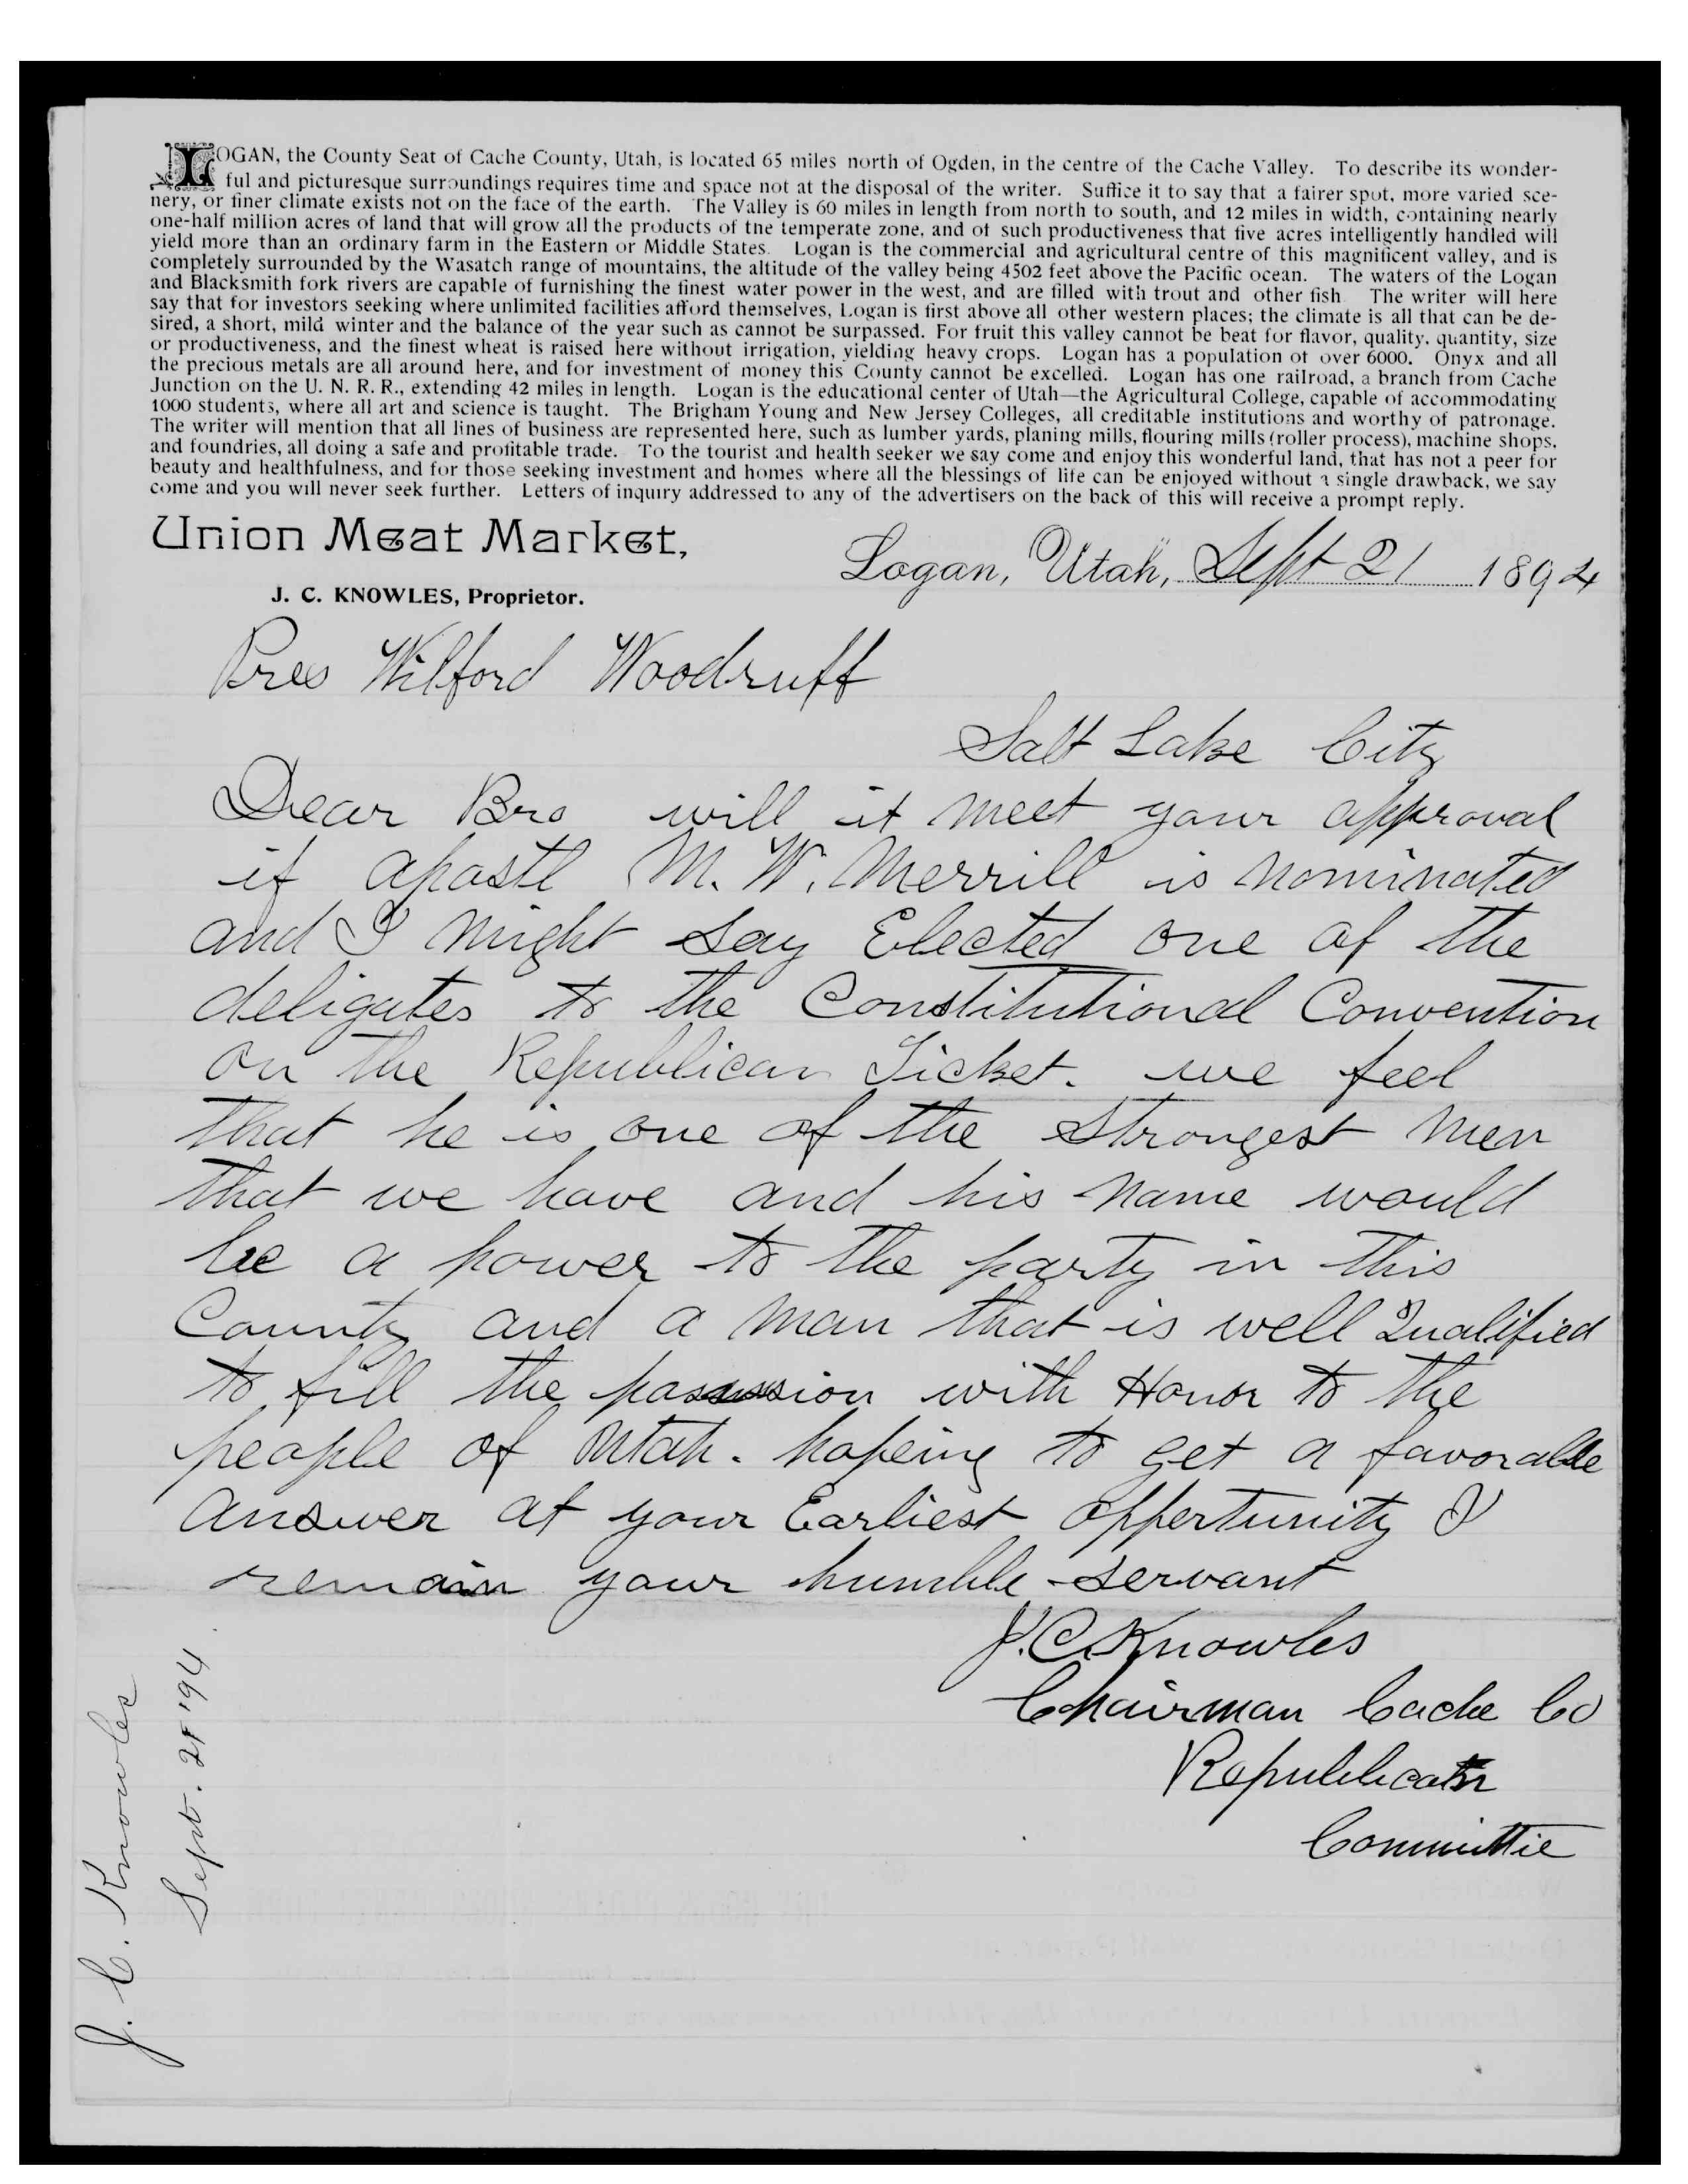 LOGAN, the County Seat of Cache County, Utah, is located 65 miles north of Ogden, in the centre of the Cache Valley. To describe its wonder-
ful and picturesque surroundings requires time and space not at the disposal of the writer. Suffice it to say that a fairer spot, more varied sce-
nery, or finer climate exists not on the face of the earth. The Valley is 60 miles in length from north to south, and 12 miles in width, containing nearly
one-half million acres of land that will grow all the products of the temperate zone, and of such productiveness that five acres intelligently handled will
yield more than an ordinary farm in the Eastern or Middle States. Logan is the commercial and agricultural centre of this magnificent valley, and is
completely surrounded by the Wasatch range of mountains, the altitude of the valley being 4502 feet above the Pacific ocean. The waters of the Logan
and Blacksmith fork rivers are capable of furnishing the finest water power in the west, and are filled with trout and other fish. The writer will here
say that for investors seeking where unlimited facilities afford themselves, Logan is first above all other western places; the climate is all that can be de-
sired, a short, mild winter and the balance of the year such as cannot be surpassed. For fruit this valley cannot be beat for flavor, quality, quantity, size
or productiveness, and the finest wheat is raised here without irrigation, yielding heavy crops. Logan has a population of over 6000. Onyx and all
the precious metals are all around here, and for investment of money this County cannot be excelled. Logan has one railroad, a branch from Cache
Junction on the U. N. R. R., extending 42 miles in length. Logan is the educational center of Utah—the Agricultural College, capable of accommodating
1000 students, where all art and science is taught. The Brigham Young and New Jersey Colleges, all creditable institutions and worthy of patronage.
The writer will mention that all lines of business are represented here, such as lumber yards, planing mills, flouring mills (roller process), machine shops,
and foundries, all doing a safe and profitable trade. To the tourist and health seeker we say come and enjoy this wonderful land, that has not a peer for
beauty and healthfulness, and for those seeking investment and homes where all the blessings of life can be enjoyed without a single drawback, we say
come and you will never seek further. Letters of inquiry addressed to any of the advertisers on the back of this will receive a prompt reply.
Union Meat Market,
J. C. KNOWLES, Proprietor.
Logan, Utah, Sept 21 1894
Pres Wilford Woodruff
Salt Lake City
Dear Bro will it meet your approval
if apostl M. W. Merrill is nominated
and I might say Elected one of the
deligates to the Constitutional Convention
on the Republican Ticket. we feel
that he is one of the strongest men
that we have and his name would
be a power to the party in this
County and a man that is well Qualified
to fill the possession with Honor to the
people of Utah. hopeing to get a favorable
answer at your Earliest oppertunity I
remain your humble servant
J. C Knowles
Chairman Cache Co
Republican
Committie
J. C. Knowles
Sept. 21 '94.